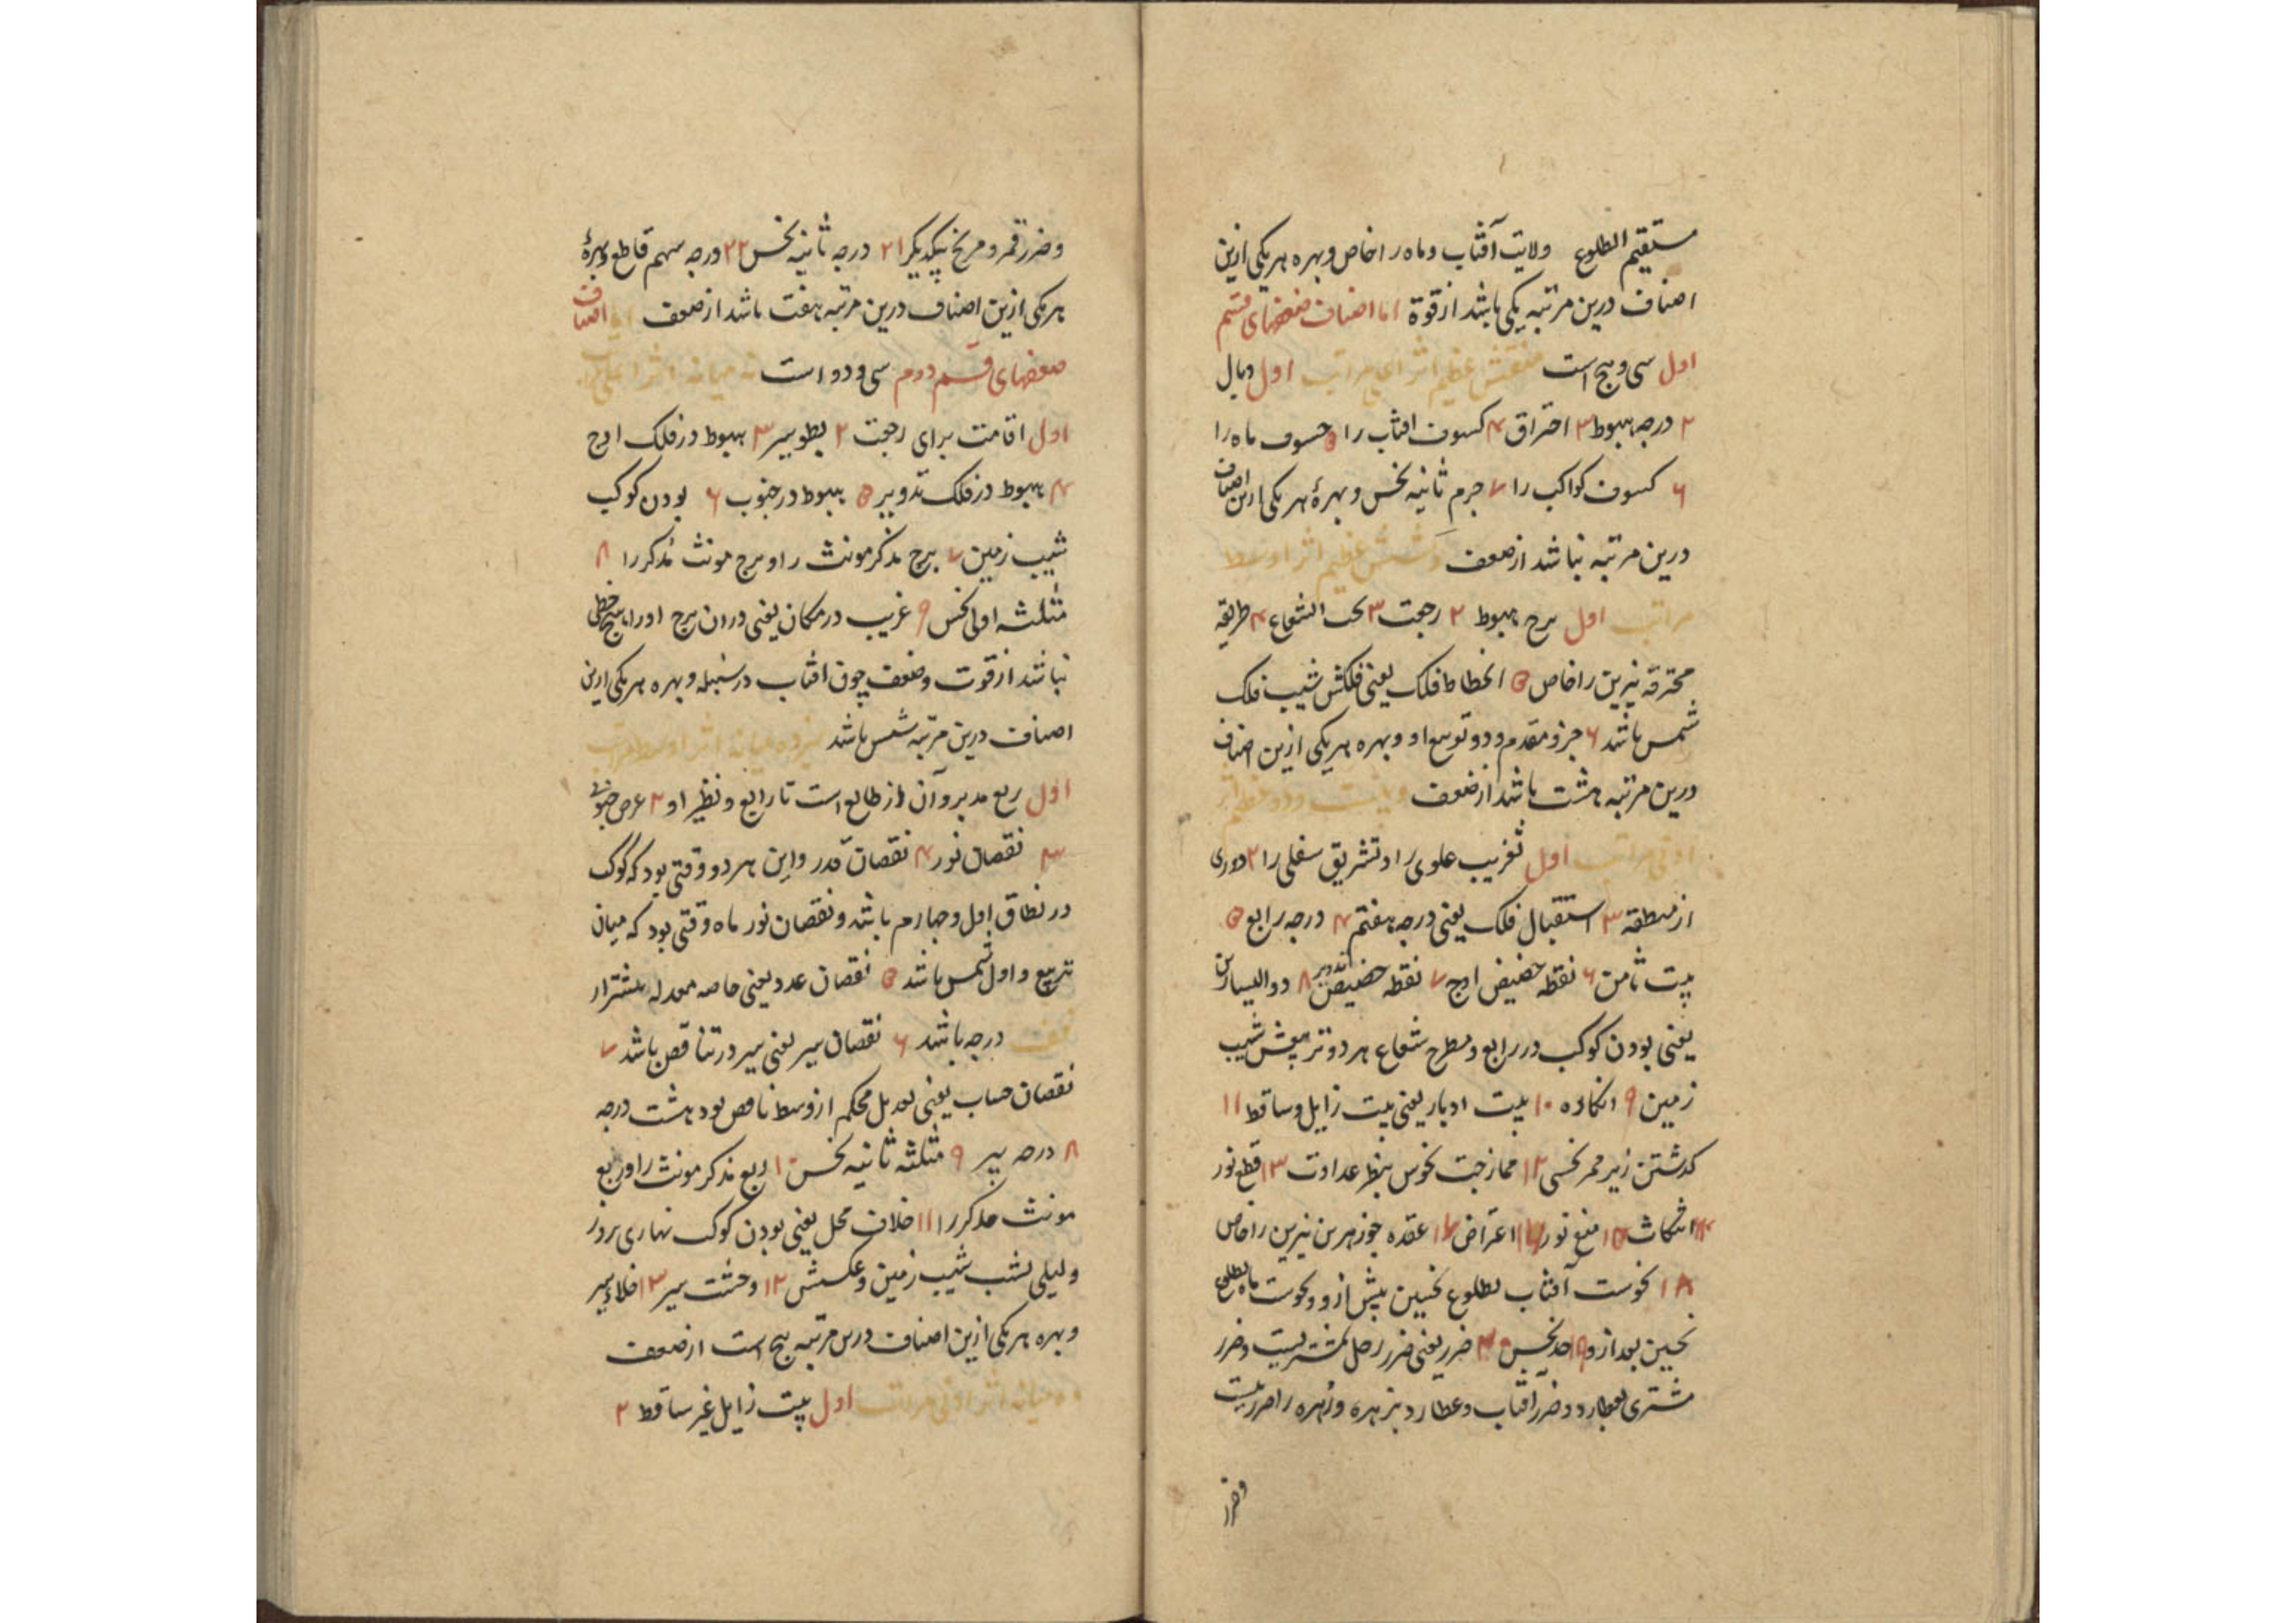 مستقیم الطلوع ولایت آفتاب و ماه را خاص و بهره هریکی ازین
اصناف درین مرتبه یکی باشد از قوة اما اصناف ضعفهای قسم
اول سی و پنج است عظیم اثر اعلی مراتب اول وبال
۲ درجه هبوط ۳ احتراق ۴ کسوف افتاب را ۵ خسوف ماه را
۶ کسوف کواکب را ۷ جرم ثانیه نحس و بهرهٔ هر یکی ازین اصناف
درین مرتبه باشد از ضعف شش عظیم اثر اوسط
مراتب اول برج هبوط ۲ رجعت ۳ تحت الشعاع ۴ طریقه
محترقه نیرین را خاص ۵ انحطاط فلک یعنی فلکش شیب فلک
شمس باشد ۶ جزو مقدم و دو توسع او و بهره هریکی ازین اصناف
درین مرتبه هشت باشد از ضعف و بیست و دو عظیم اثر
ادنی مراتب اول تغریب علوی را و تشریق سفلی را ۲ دوری
از منطقه ۳ استقبال فلک یعنی درجه هفتم ۴ درجه رابع ۵
بیت ثامن ۶ نقطه حضیض اوج ۷ نقطه حضیض تدویر ۸ ذو الیسارین
یعنی بودن کوکب در رابع و مطرح شعاع هر دو تربیعش شیب
زمین ۹ انکاره ۱۰ بیت ادبار یعنی بیت زایل و ساقط ۱۱
کذشتن زیر ممر نحسی ۱۲ ممازجت نحوس بنظر عداوت ۱۳ قطع نور
۱۴ انتکاث ۱۵ منع نور ۱۶ اعتراض ۱۷ عقده جوزهرین نیرین را خاص
۱۸ نحوست آفتاب بطلوع نحسین پیش ازو و نحوست ماه بطلوع
نحسین بعد ازو ۱۹ حد نحس ۲۰ ضرر یعنی ضرر زحل بمشتریست و ضرر
مشتری بعطارد و ضرر آفتاب و عطارد بزهره و زهره را ضرر نیست
وضرر
وضرر قمر و مریخ بیکدیکر ۲۱ درجه ثانیه نحس ۲۲ درجه سهم قاطع و بهرهٔ
هریکی ازین اصناف درین مرتبه هفت باشد از ضعف اما اصناف
ضعفهای قسم دوم سی و دو است نه میانه اثر اعلی مراتب
اول اقامت برای رجعت ۲ بطو سیر ۳ هبوط در فلک اوج
۴ هبوط در فلک تدویر ۵ هبوط در جنوب ۶ بودن کوکب
شیب زمین ۷ برج مذکر مونث را و برج مونث مذکر را ۸
مثلثه اولی نحس ۹ غریب در مکان یعنی در ان برج او را هیچ حظی
نباشد از قوت و ضعف چون افتاب در سنبله و بهره هریکی ازین
اصناف درین مرتبه شش باشد سیزده میانه اثر اوسط مراتب
اول ربع مدبر و آن از طالع است تا رابع و نظیر او ۲ عرض جنوبی
۳ نقصان نور ۴ نقصان قدر و این هر دو وقتی بود که کوکب
در نطاق اول و چهارم باشد و نقصان نور ماه وقتی بود که میان
تربیع و اول شمس باشد ۵ نقصان عدد یعنی خاصه معدله بیشتر از
درجه باشد ۶ نقصان سیر یعنی سیر در تناقص باشد ۷
نقصان حساب یعنی تعدیل محکم از وسط ناقص بود هشت درجه
۸ درجه بیر ۹ مثلثه ثانیه نحس ۱۰ ربع مذکر مونث را و ربع
مونث مذکر را ۱۱ خلاف محل یعنی بودن کوکب نهاری بروز
و لیلی بشب شیب زمین و عکسش ۱۲ وحشت سیر ۱۳ خلاء سیر
و بهره هریکی ازین اصناف درین مرتبه پنج است از ضعف
ده میانه اثر ادنی مراتب اول بیت زایل غیر ساقط ۲